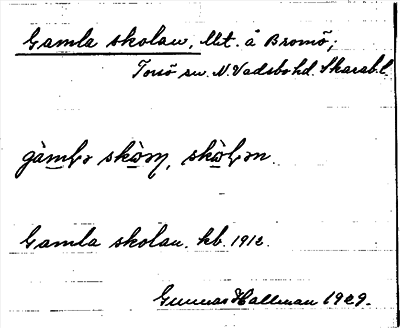 Gamla skolan, lht. å Bromö;
Torsö sn. N. Vadsbo hd. Skarab.l.
gàmḷɔ skòɔn, skòḷɔn.
Gamla skolan. kb. 1912.
Gunnar Hallman 1929.